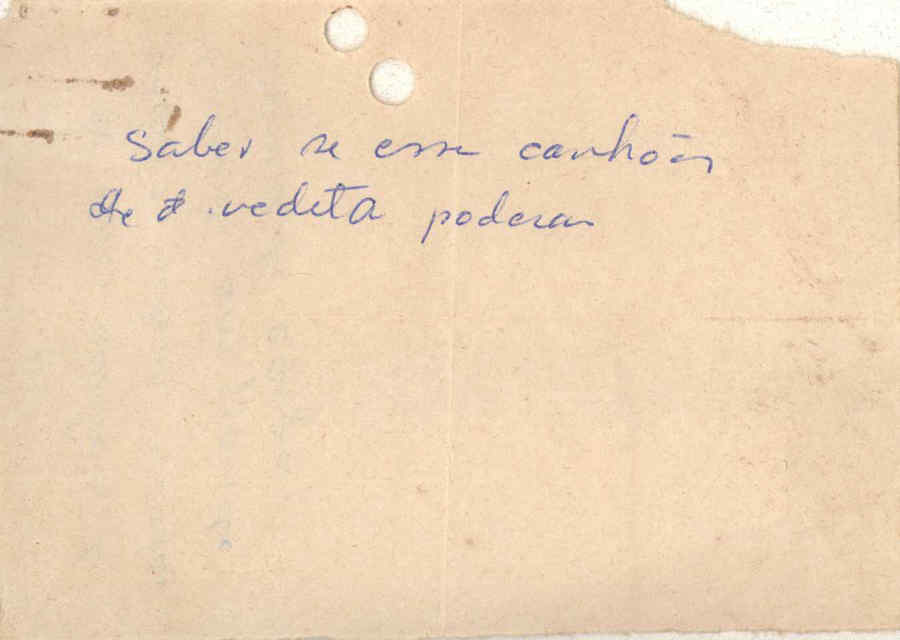 Saber se esse canhões
de vedeta poderan